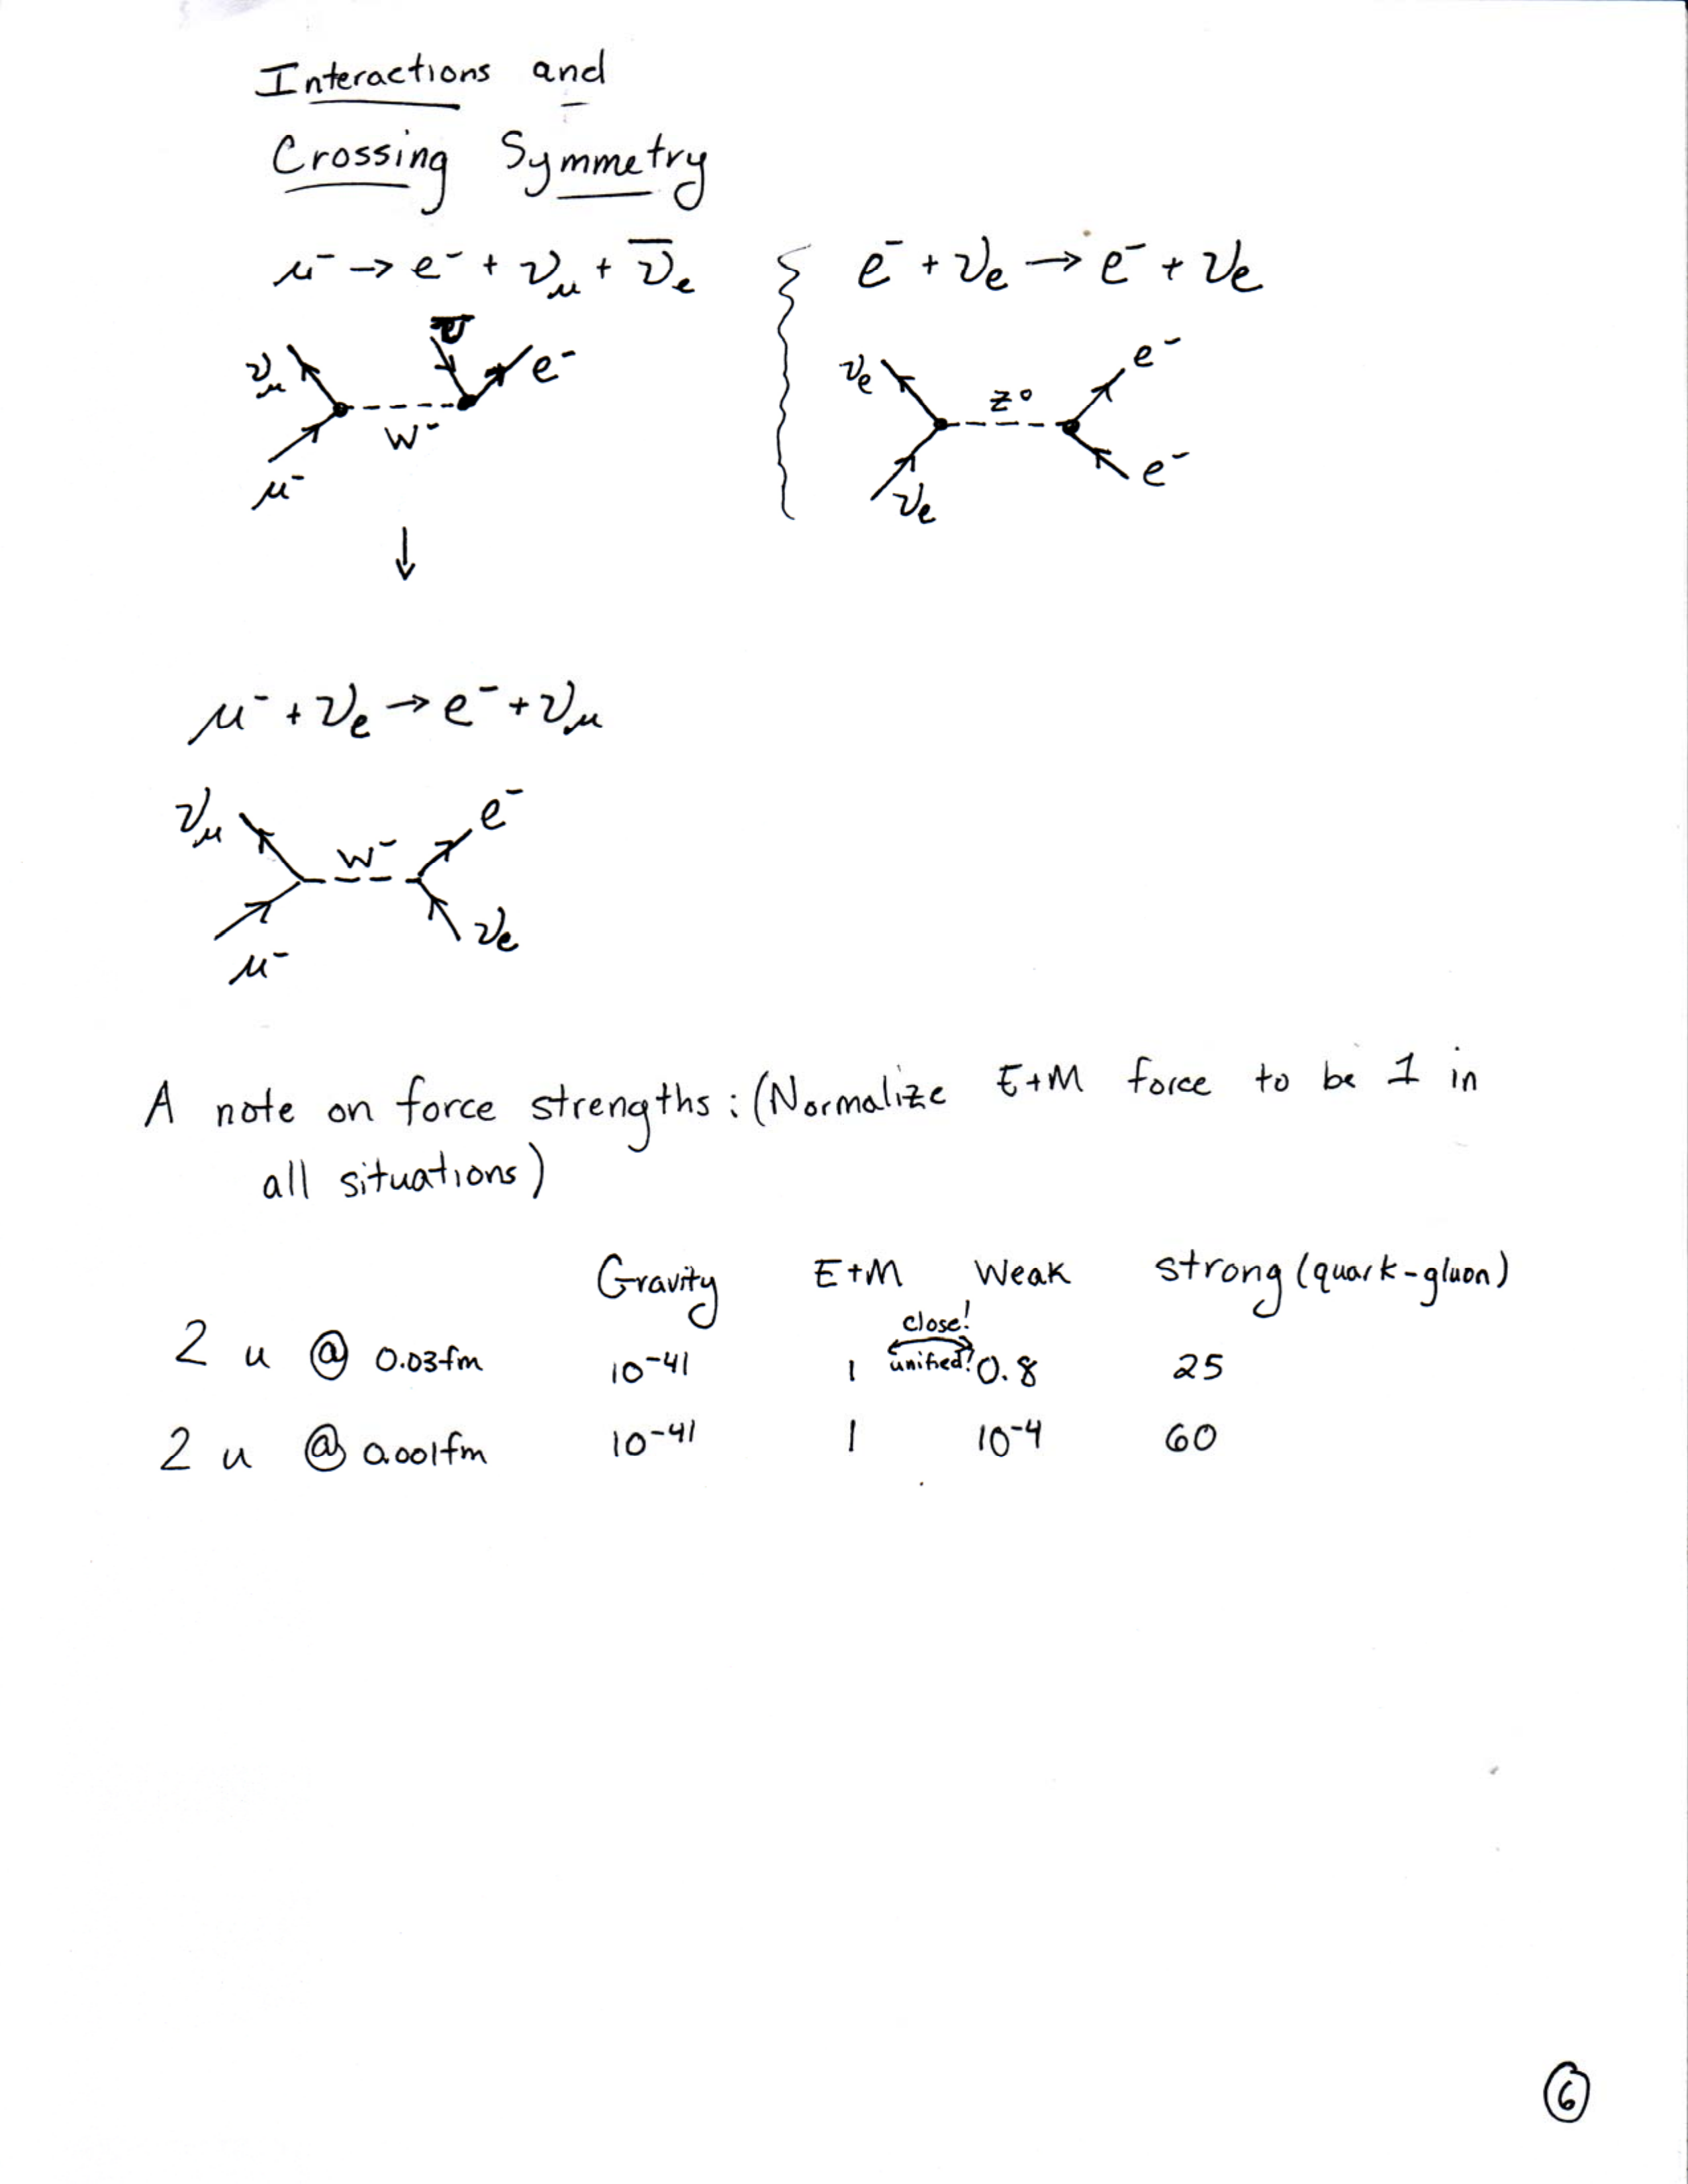 Interactions and
Crossing Symmetry
μ⁻ → e⁻ + ν_μ + ν̄_e
e⁻ + ν_e → e⁻ + ν_e
ν̄
ν_μ e⁻
W⁻
μ⁻
ν_e e⁻
Z⁰
e⁻
ν_e
↓
μ⁻ + ν_e → e⁻ + ν_μ
ν_μ e⁻
W⁻
ν_e
μ⁻
A note on force strengths : (Normalize E+M force to be 1 in
all situations)
Gravity E+M Weak strong (quark-gluon)
close!
2 u @ 0.03fm 10⁻⁴¹ 1 unified? 0.8 25
2 u @ 0.001fm 10⁻⁴¹ 1 10⁻⁴ 60
6